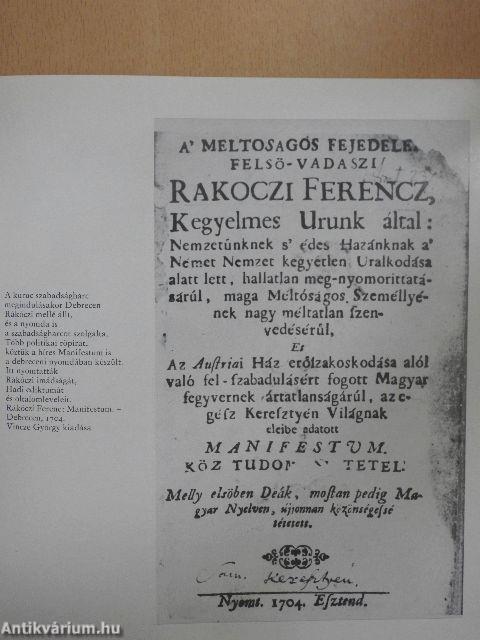 A kuruc szabadságharc
megindulásakor Debrecen
Rákóczi mellé állt,
és a nyomda is
a szabadságharcot szolgálta.
Több politikai röpirat,
köztük a híres Manifestum is
a debreceni nyomdában készült.
Itt nyomtatták
Rákóczi imádságát,
Hadi edictumát
és oltalomleveleit.
Rákóczi Ferenc: Manifestum. –
Debrecen, 1704.
Vincze György kiadása
A' MELTOSAGOS FEJEDELE
FELSÖ-VADASZI
RAKOCZI FERENCZ,
Kegyelmes Urunk által:
Nemzetünknek s' édes Hazánknak a'
Német Nemzet kegyetlen Uralkodása
alatt lett, hallatlan meg-nyomorittatá-
sárúl, maga Méltóságos Személlyé-
nek nagy méltatlan ſzen-
vedéſérűl,
Et
Az Auſtriai Ház erőſzakoskodása alól
való fel-ſzabadulásért fogott Magyar
fegyvernek ártatlanságárúl, az e-
géſz Kereſztyén Világnak
eleibe adatott
MANIFESTUM.
KÖZ TUDO TETEL:
Melly elsöben Deák, moſtan pedig Ma-
gyar Nyelven, újjonnan közönségeſsé
tétetett.
Nyomt. 1704. Eſztend.
Antikvárium.hu